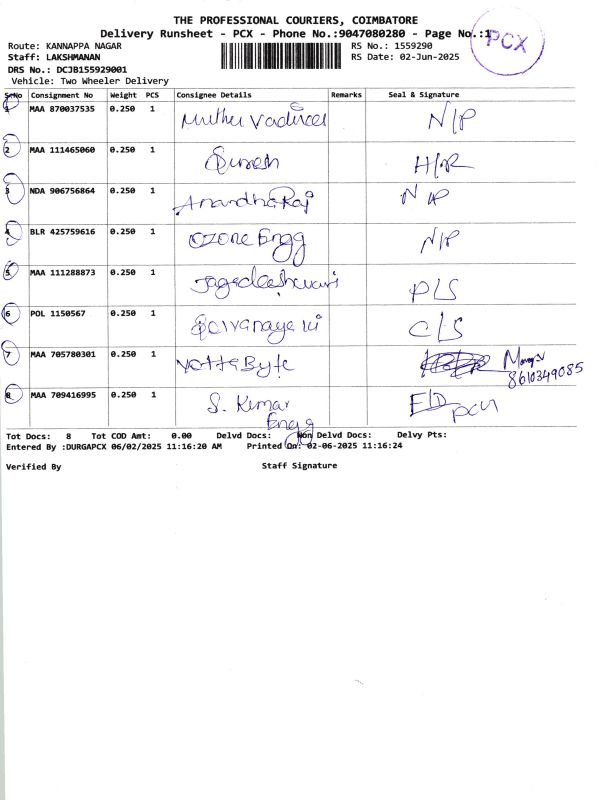 THE PROFESSIONAL COURIERS, COIMBATORE
Delivery Runsheet - PCX - Phone No.:9047080280 - Page No.:1
PCX
Route: KANNAPPA NAGAR
RS No.: 1559290
Staff: LAKSHMANAN
RS Date: 02-Jun-2025
DRS No.: DCJB155929001
Vehicle: Two Wheeler Delivery
SrNo Consignment No Weight PCS Consignee Details Remarks Seal & Signature
1 MAA 870037535 0.250 1 N/P
2 MAA 111465060 0.250 1 Suresh
3 NDA 906756864 0.250 1 AnandhaRaj N/P
4 BLR 425759616 0.250 1 OZONE Engg N/P
5 MAA 111288873 0.250 1 Jagadeeshwari
6 POL 1150567 0.250 1
7 MAA 705780301 0.250 1 YottaByte 8610349085
8 MAA 709416995 0.250 1 S. Kumar Engg
Tot Docs: 8 Tot COD Amt: 0.00 Delvd Docs: Non Delvd Docs: Delvy Pts:
Entered By :DURGAPCX 06/02/2025 11:16:20 AM Printed On: 02-06-2025 11:16:24
Verified By Staff Signature